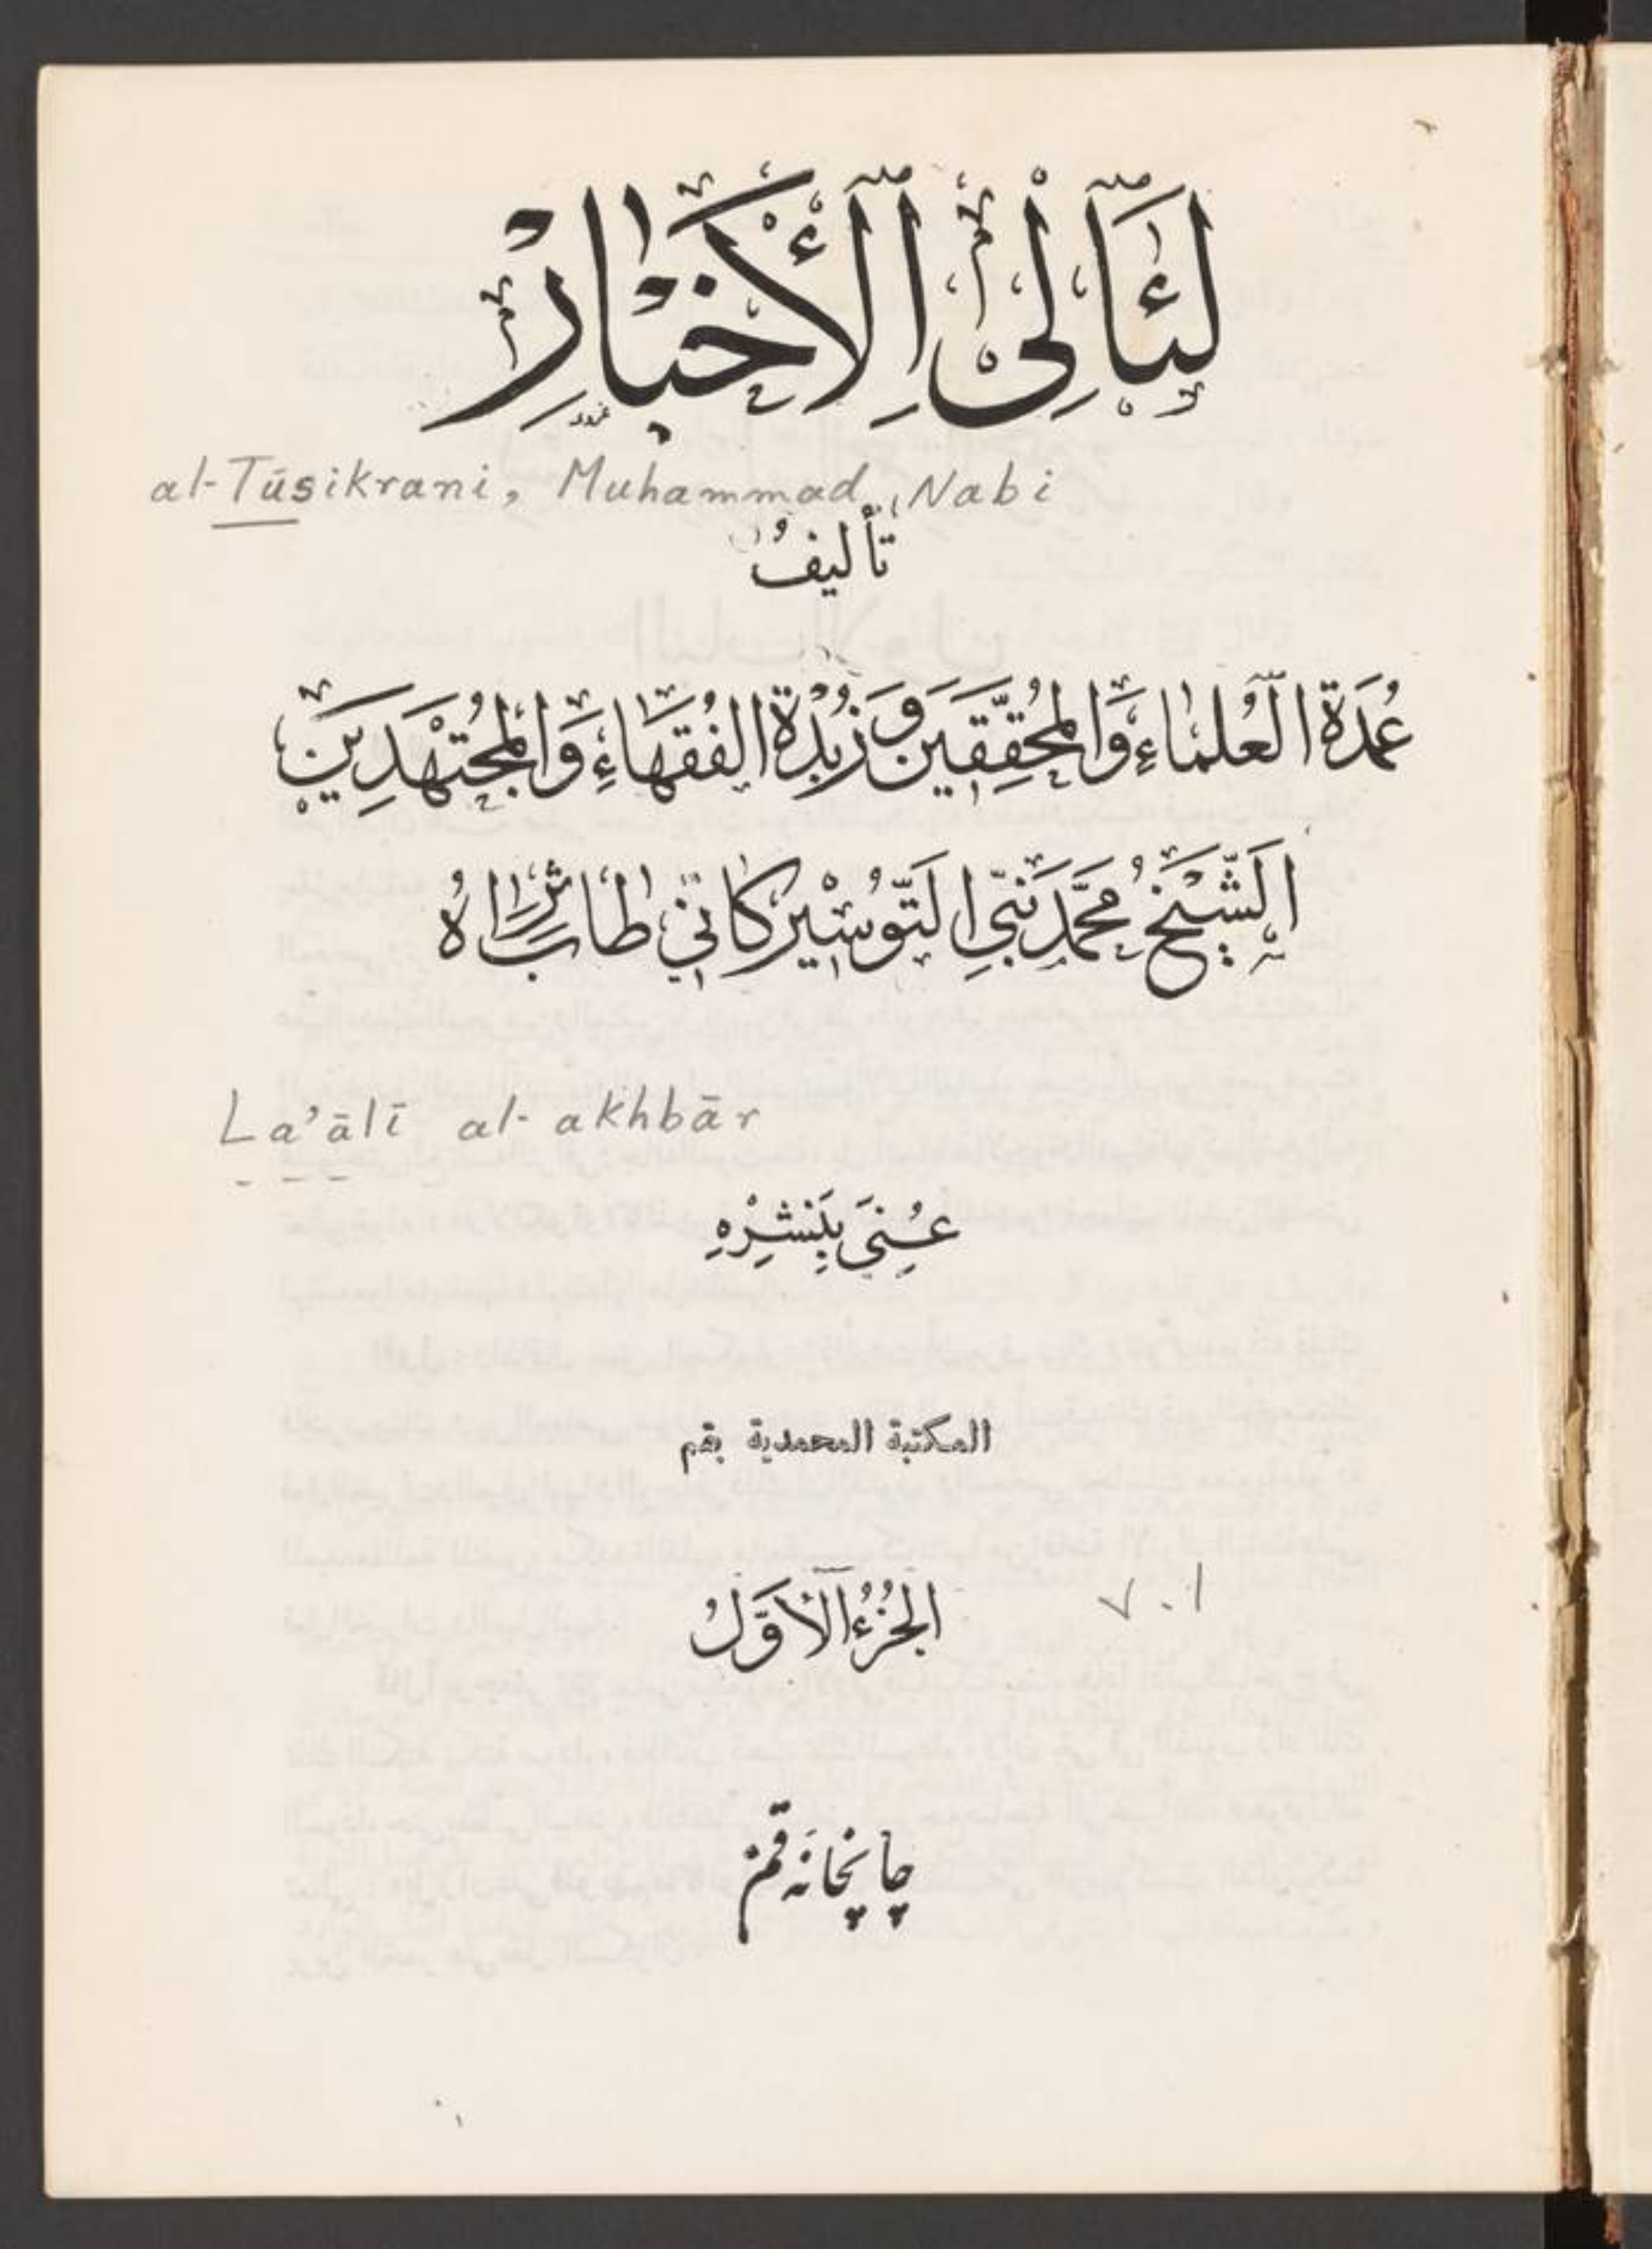 لَئَالِي الْأَخْبَارِ
al-Tūsikrani, Muhammad Nabi
تأليفُ
عُمْدَةِ الْعُلَمَاءِ وَالْمُحَقِّقِينَ وَزُبْدَةِ الْفُقَهَاءِ وَالْمُجْتَهِدِينَ
الشَّيْخِ مُحَمَّد نَبِيِّ التُّوسِيركَانِي طَابَ ثَرَاهُ
La'ālī al-akhbār
عُنِيَ بِنَشْرِهِ
المكتبة المحمدية بقم
الجُزْءُ الْأَوَّلُ
٧٠١
چاپخانه قم